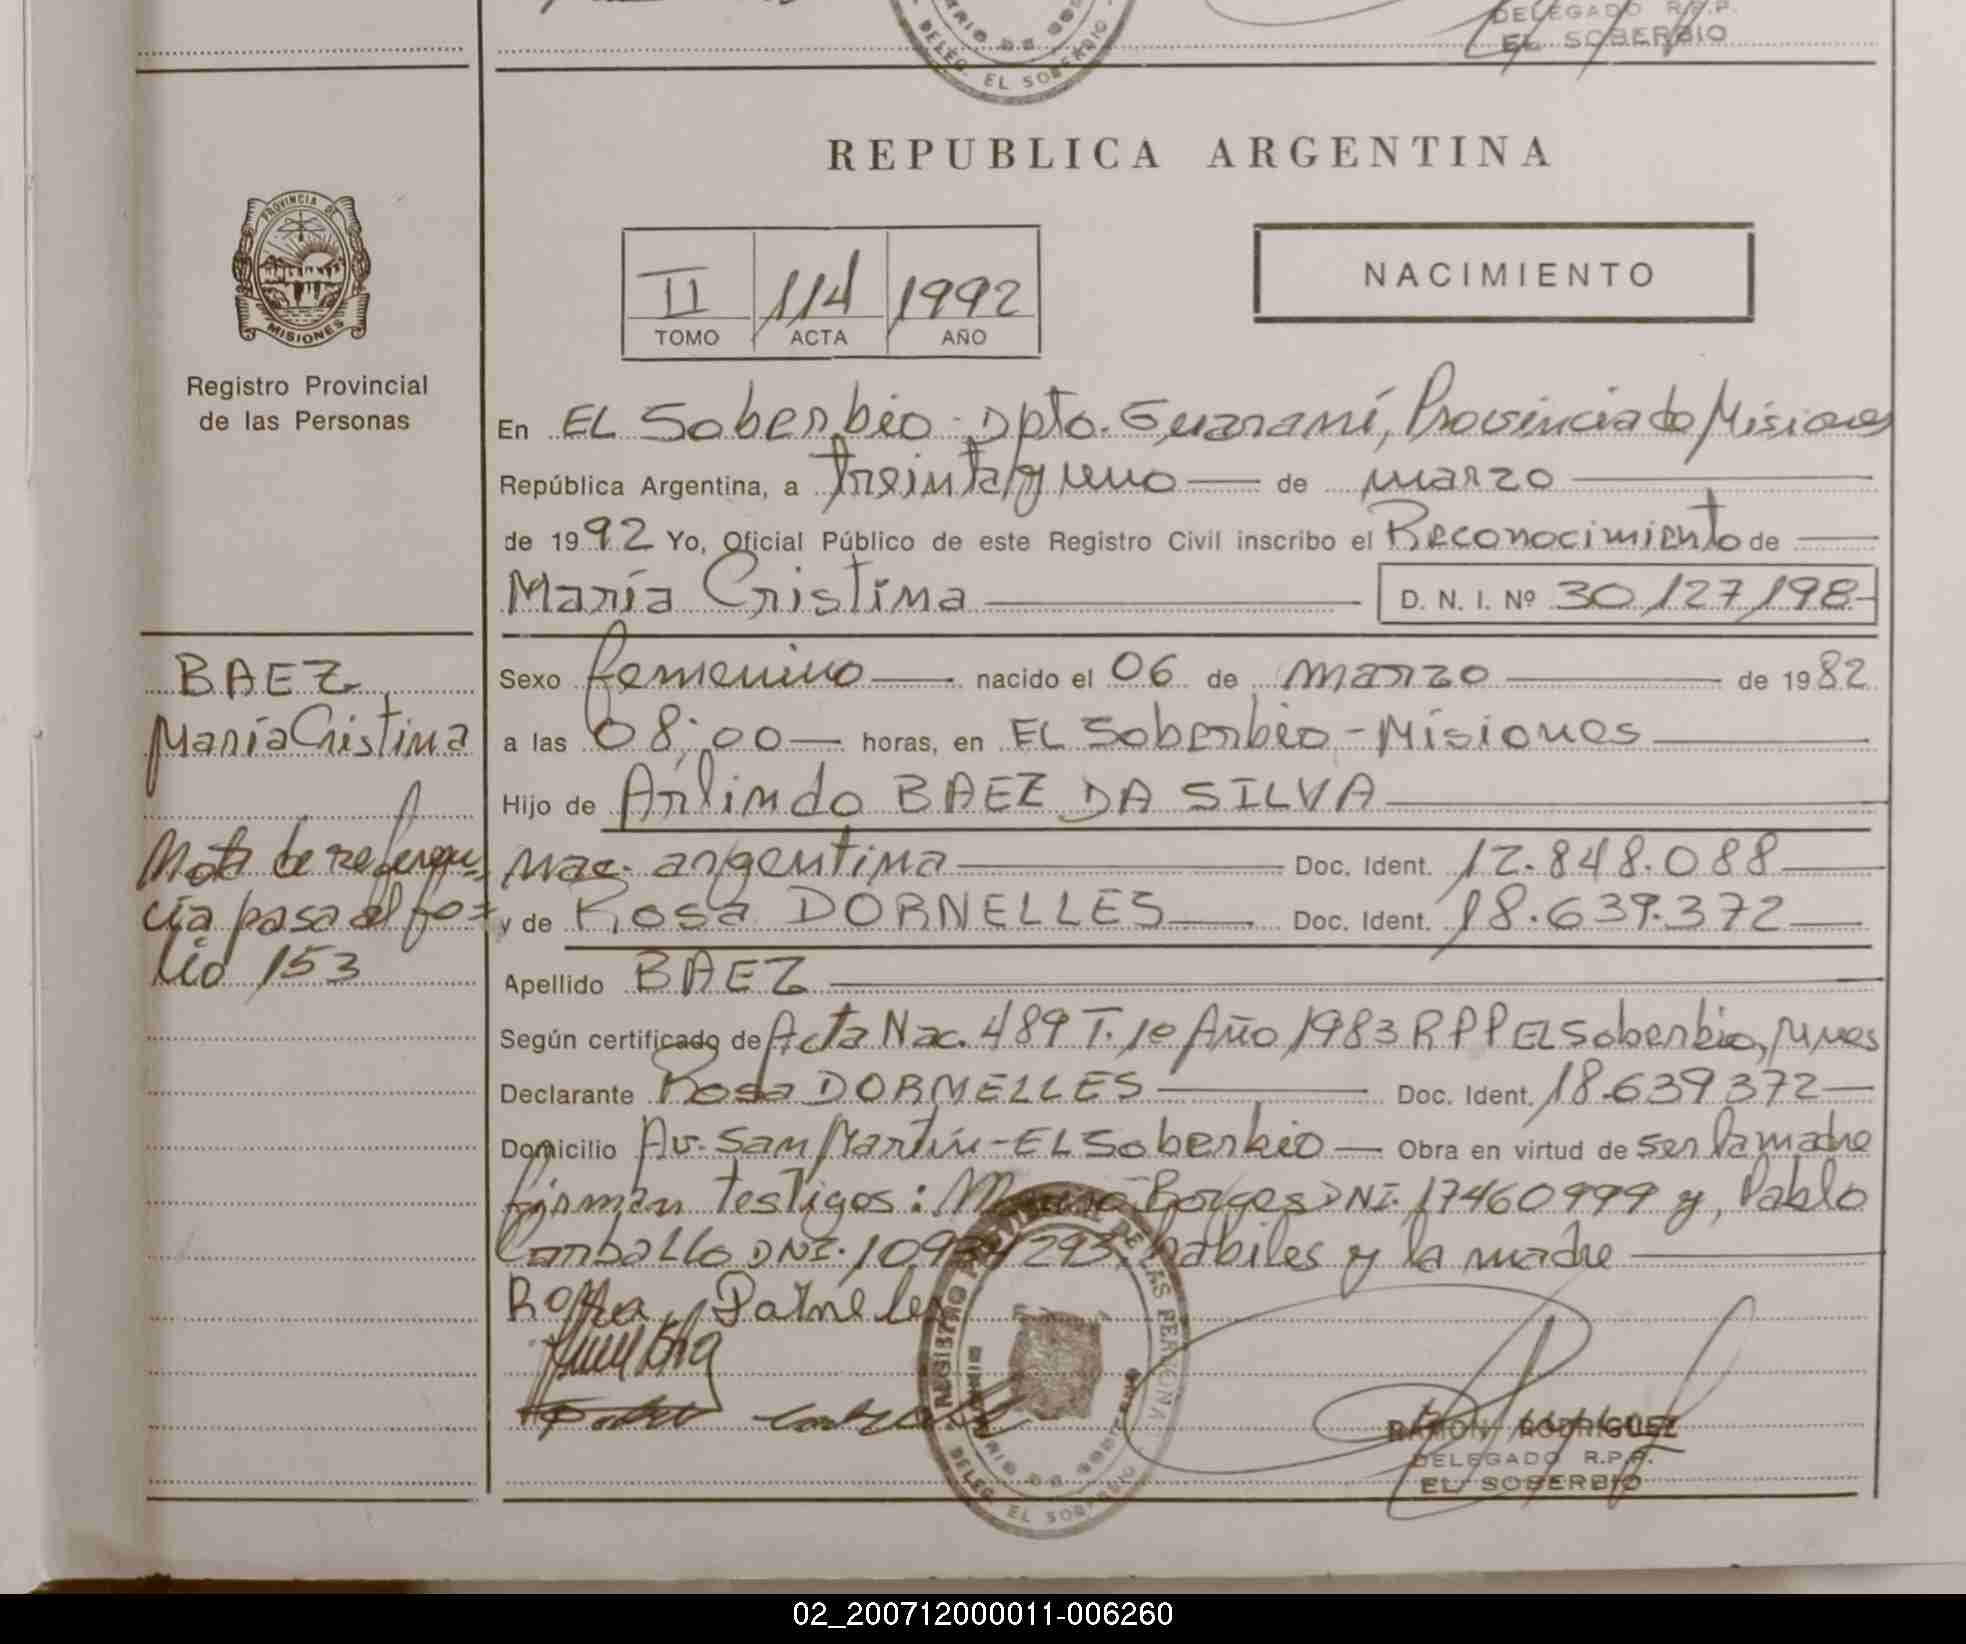 DELEGADO R.P.P.
EL SOBERBIO
DELEG. EL SOBERBIO
REPUBLICA ARGENTINA
PROVINCIA DE
MISIONES
Registro Provincial
de las Personas
II 114 1992
TOMO ACTA AÑO
NACIMIENTO
En EL Soberbio - Dpto. Guaraní, Provincia de Misiones
República Argentina, a treinta y uno de marzo
de 1992 Yo, Oficial Público de este Registro Civil inscribo el Reconocimiento de
María Cristina D. N. I. Nº 30/127/198
BAEZ,
María Cristina
Nota de referen
cia pasa al fo=
lio 153
Sexo femenino nacido el 06 de marzo de 1982
a las 08:00 horas, en EL Soberbio - Misiones
Hijo de Arlindo BAEZ DA SILVA
nac. argentina Doc. Ident. 12.848.088
y de Rosa DORNELLES Doc. Ident. 18.639.372
Apellido BAEZ
Según certificado de Acta Nac. 489 T. 1º Año 1983 RPP EL Soberbio, Mnes
Declarante Rosa DORNELLES Doc. Ident. 18.639372
Domicilio Av. San Martín - EL Soberbio Obra en virtud de ser la madre
firman testigos: Borges DNI. 17460999 y, Pablo
Carballo DNI. habiles y la madre
Rosa Dorneles
REGISTRO PROVINCIAL DE LAS PERSONAS
DELEG. EL SOBERBIO
RAMON RODRIGUEZ
DELEGADO R.P.P.
EL SOBERBIO
02_200712000011-006260